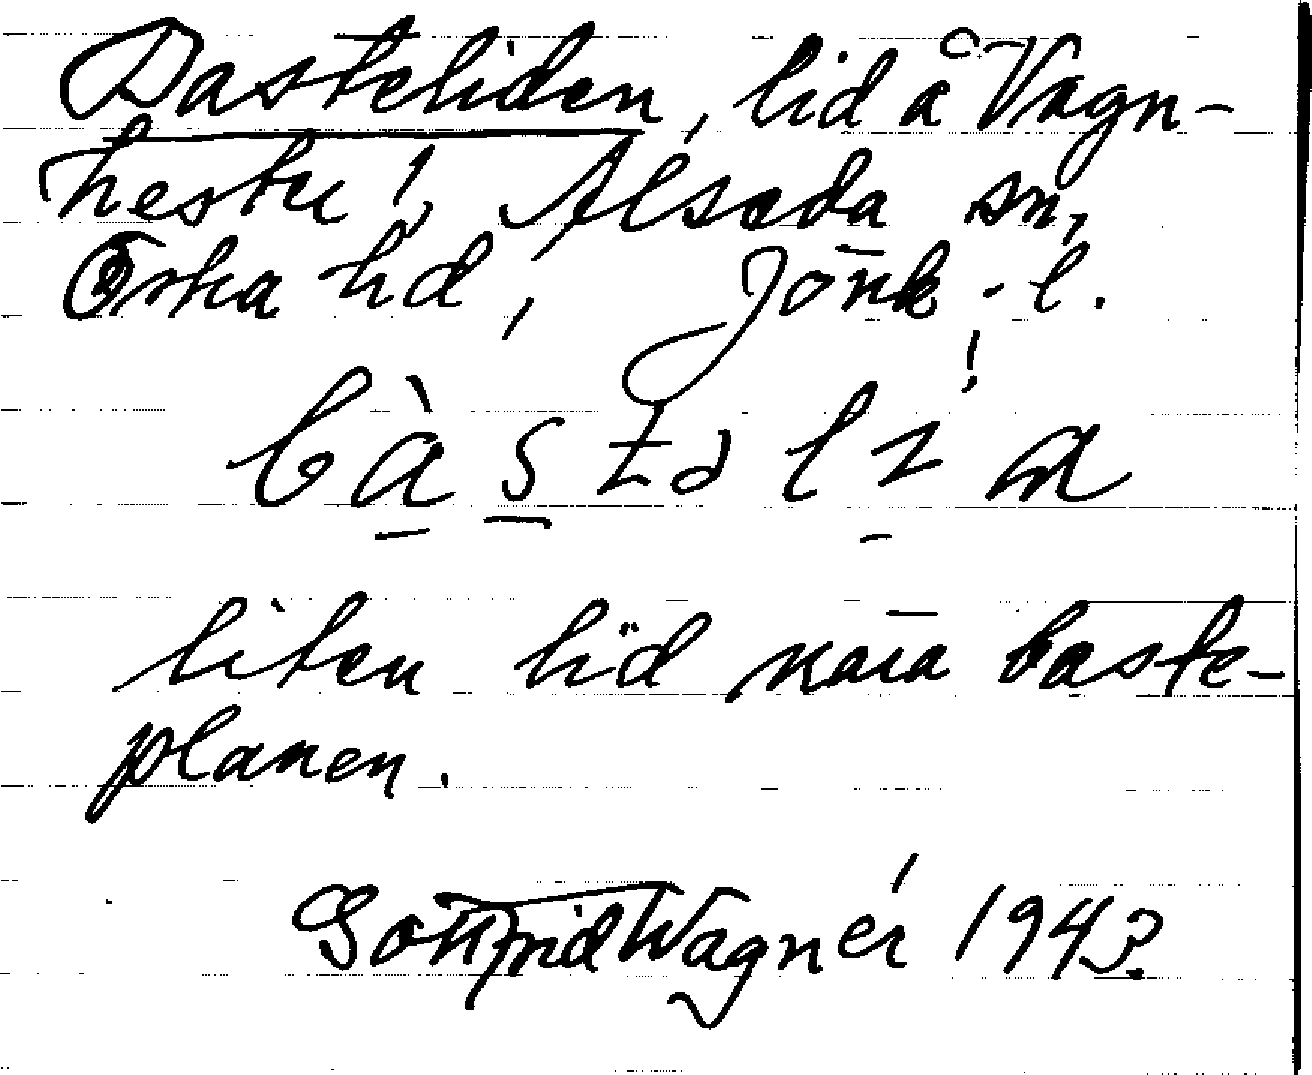 Basteliden, lid å Vagn-
hestu!, Alseda sn,
Östra hd, Jönk.-l.
liten lid nära baste-
planen.
Gottfrid Wagnér 1943